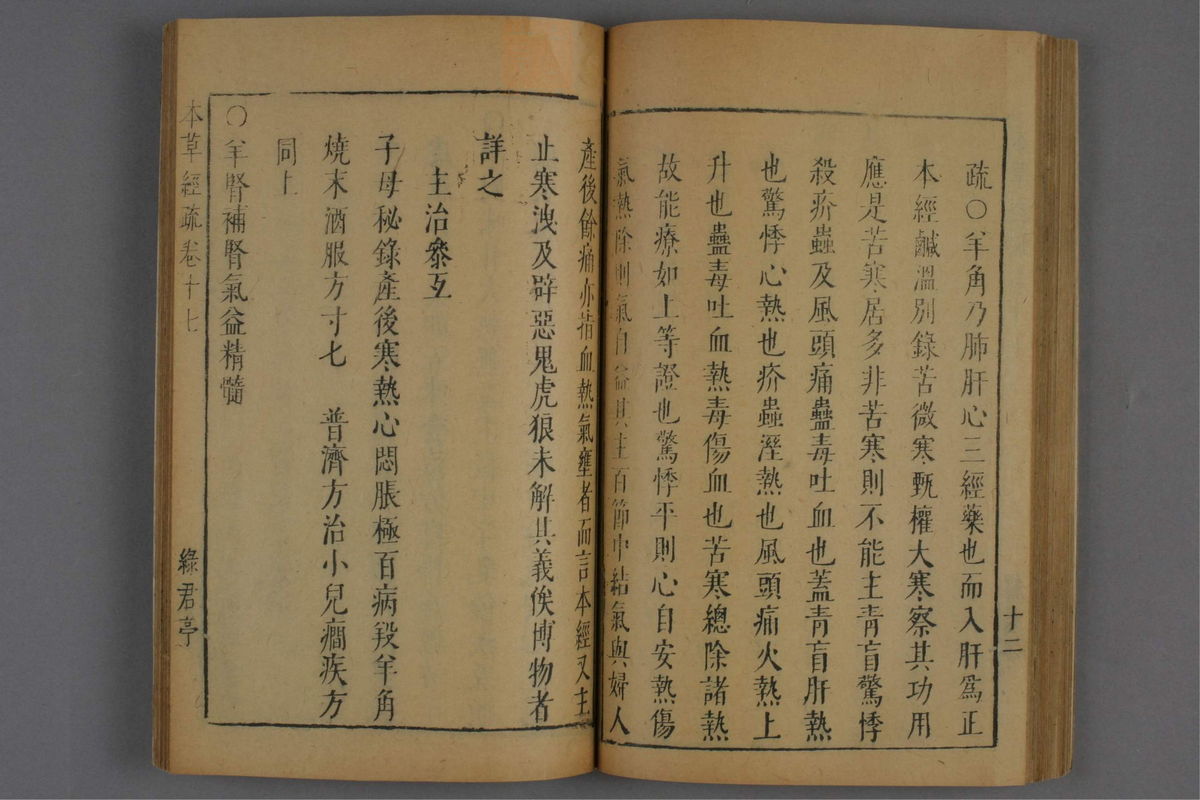 十二
疏○羊角乃肺肝心三經藥也而入肝爲正
本經鹹溫別錄苦微寒甄權大寒察其功用
應是苦寒居多非苦寒則不能主青盲驚悸
殺疥蟲及風頭痛蠱毒吐血也蓋青盲肝熱
也驚悸心熱也疥蟲溼熱也風頭痛火熱上
升也蠱毒吐血熱毒傷血也苦寒總除諸熱
故能療如上等證也驚悸平則心自安熱傷
氣熱除則氣自益其主百節中結氣與婦人
產後餘痛亦指血熱氣壅者而言本經又主
止寒洩及辟惡鬼虎狼未解其義俟博物者
詳之
主治參互
子母秘錄產後寒熱心悶脹極百病羖羊角
燒末酒服方寸匕 普濟方治小兒癎疾方
同上
○羊腎補腎氣益精髓
本草經疏卷十七 綠君亭